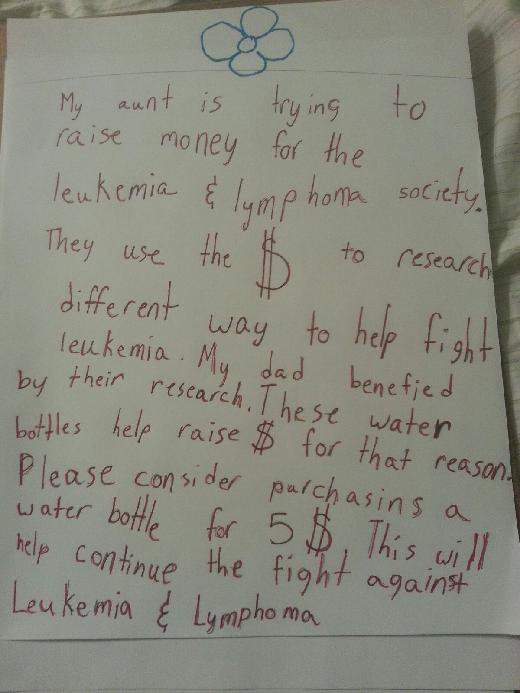 My aunt is trying to
raise money for the
leukemia & lymphoma society.
They use the $ to research
different way to help fight
leukemia. My dad benefied
by their research. These water
bottles help raise $ for that reason.
Please consider purchasins a
water bottle for 5 $ This will
help continue the fight against
Leukemia & Lymphoma